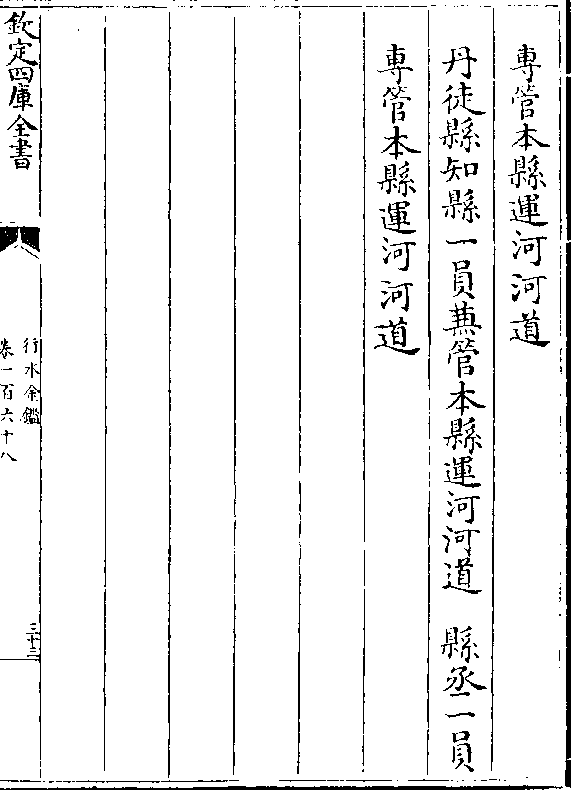 專管本縣運河河道
丹徒縣知縣一員兼管本縣運河河道　縣丞一員
專管本縣運河河道
欽定四庫全書
行水金鑑
卷一百六十八
三十三